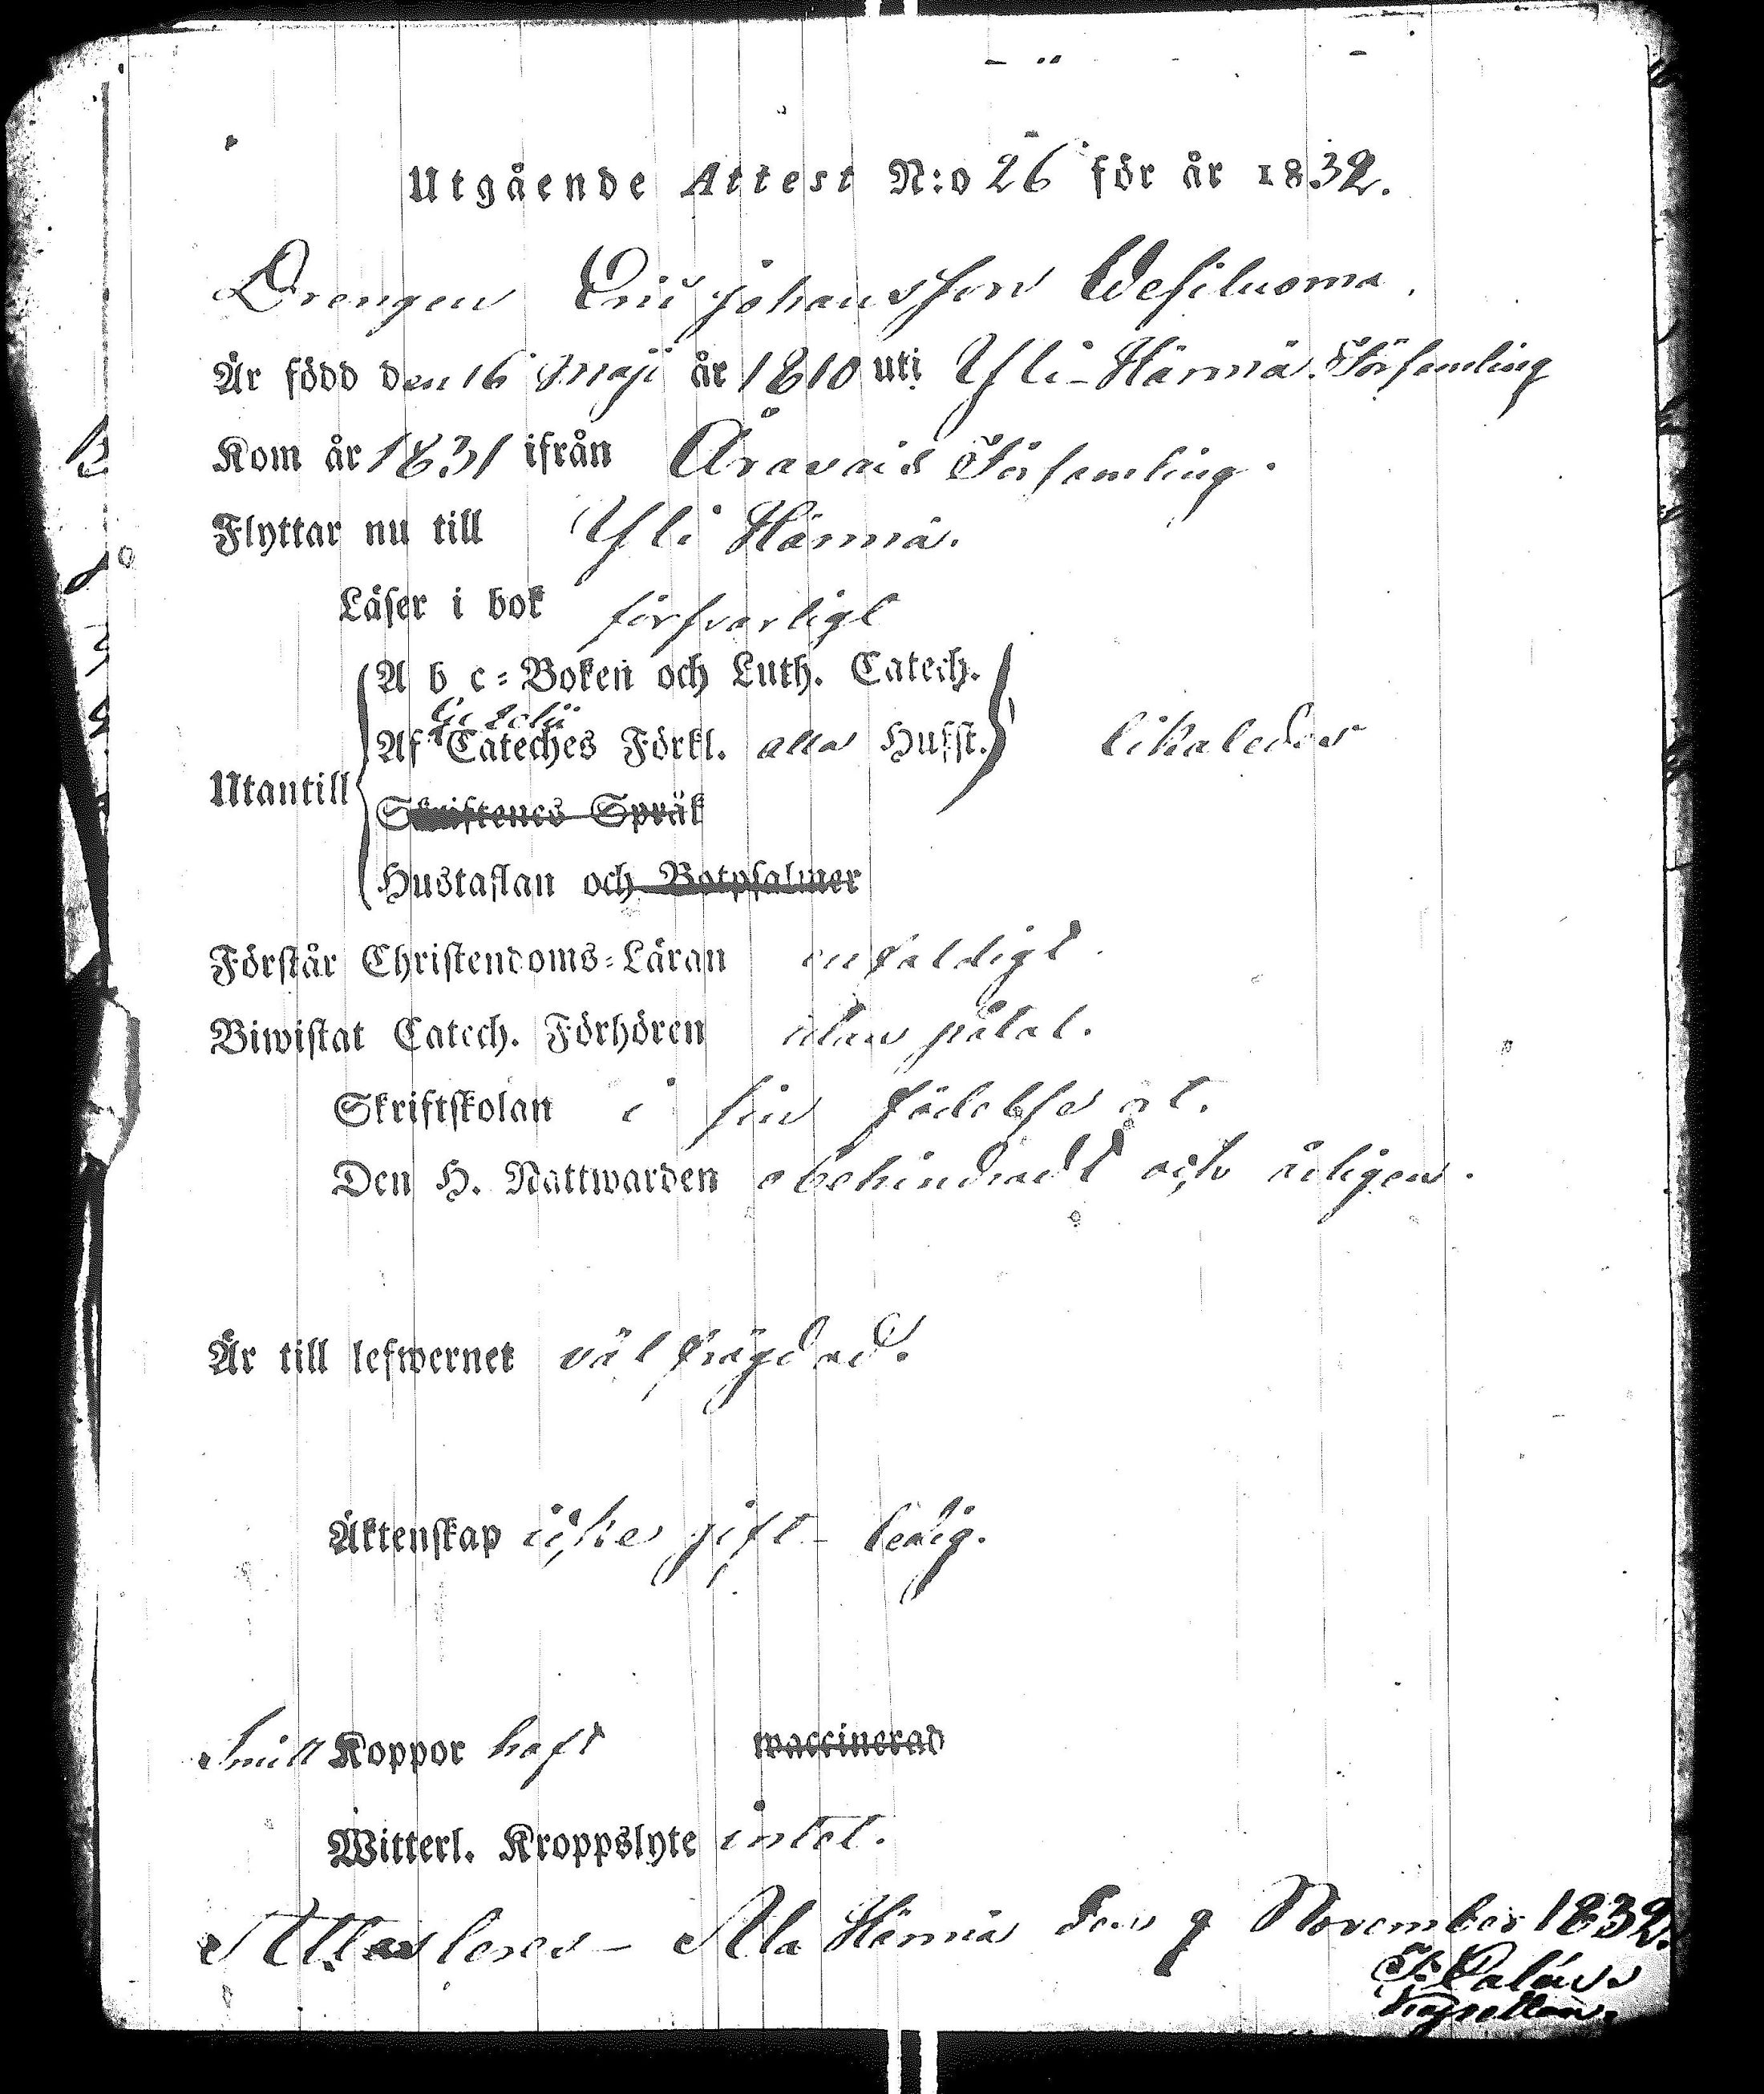 Utgående Attest N:o 26 för år 1832.
Drengen Eric Johansson Wesiluoma.
Är född den 16 Maji år 1810 uti Yli-Härmä Församling
Kom år 1831 ifrån Åravais Församling.
Flyttar nu till Yli Härmä.
Läser i bok försvarligt
A b c-Boken och Luth. Catech.
Af Cateches Förkl. alla Hufst. likaledes
Utantill
Skriftenes Språk
Hustaflan och Botpsalmer
Förstår Christendoms-Läran enfaldigt.
Biwistat Catech. Förhören utan påtal.
Skriftskolan i sin födelse ort.
Den H. Nattwarden obehindradt och årligen.
Är till lefwernet väl frägdad.
Äktenskap icke gift - ledig.
Koppor haft waccinerad
Witterl. Kroppslyte intet.
Attesteres - Ala Härmä den 9 November 1832.